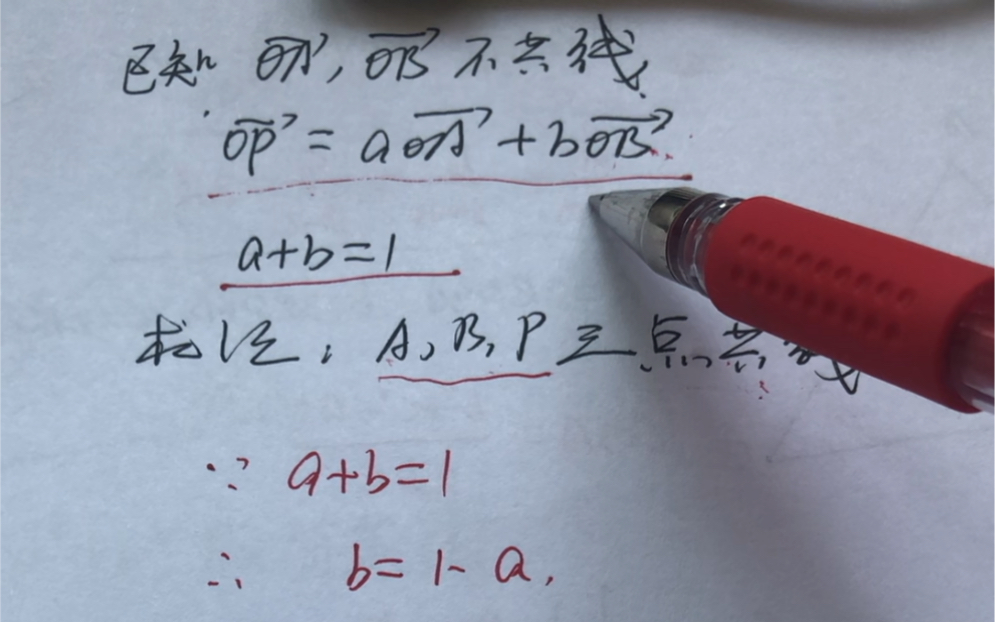 已知 OA⃗, OB⃗ 不共线
OP⃗ = aOA⃗ + bOB⃗
a+b=1
求证: A, B, P 三点共线
∵ a+b=1
∴ b=1-a,